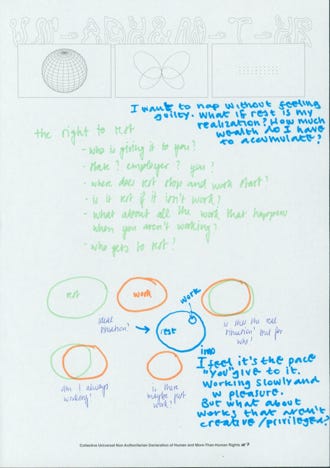 I want to nap without feeling
guilty. What if rest is my
realization? How much
wealth do I have
to accumulate?
the right to rest
- who is giving it to you?
- state? employer? you?
- where does rest stop and work start?
- is it rest if it isn't work?
- what about all the work that happens
when you aren't working?
- who gets to rest?
rest
work
work
ideal
situation?
rest
is this the real
situation? but for
who?
am I always
working?
is there
maybe just
work?
imo
I feel it's the pace
"you give to it.
Working slowly and
w pleasure.
But what about
works that aren't
creative/privileged?
Collective Universal Non Authoritarian Declaration of Human and More-Than-Human Rights